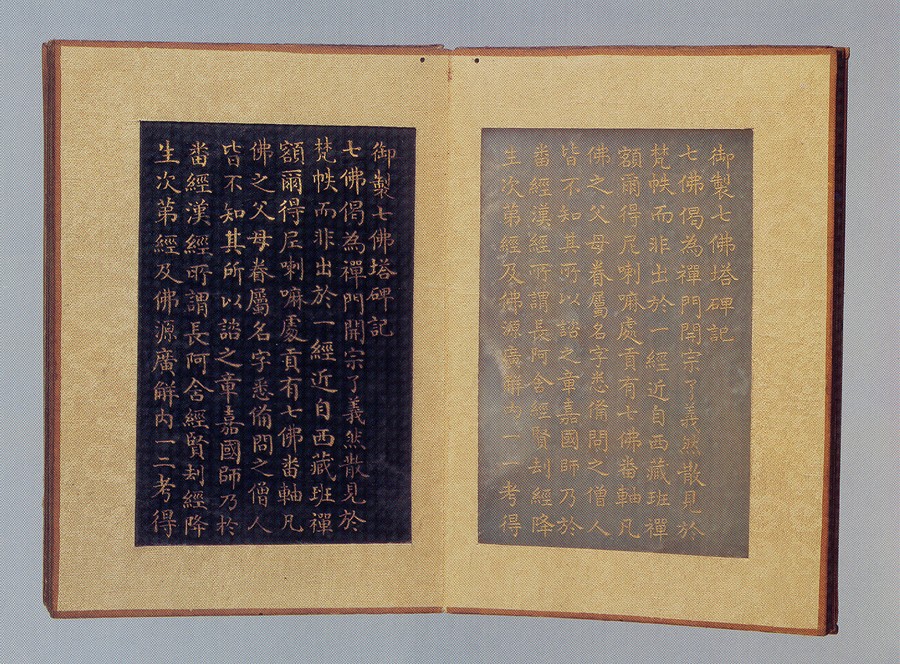 御製七佛塔碑記
七佛偈為禪門開宗了義然散見於
梵帙而非出於一經近自西藏班禪
額爾得尼喇嘛處貢有七佛畨軸凡
佛之父母眷屬名字悉俻問之僧人
皆不知其所以諮之章嘉國師乃於
畨經漢經所謂長阿含經賢刼經降
生次第經及佛源廣解内一二考得
御製七佛塔碑記
七佛偈為禪門開宗了義然散見於
梵帙而非出於一經近自西藏班禪
額爾得尼喇嘛處貢有七佛畨軸凡
佛之父母眷屬名字悉俻問之僧人
皆不知其所以諮之章嘉國師乃於
畨經漢經所謂長阿含經賢刼經降
生次第經及佛源廣解内一二考得